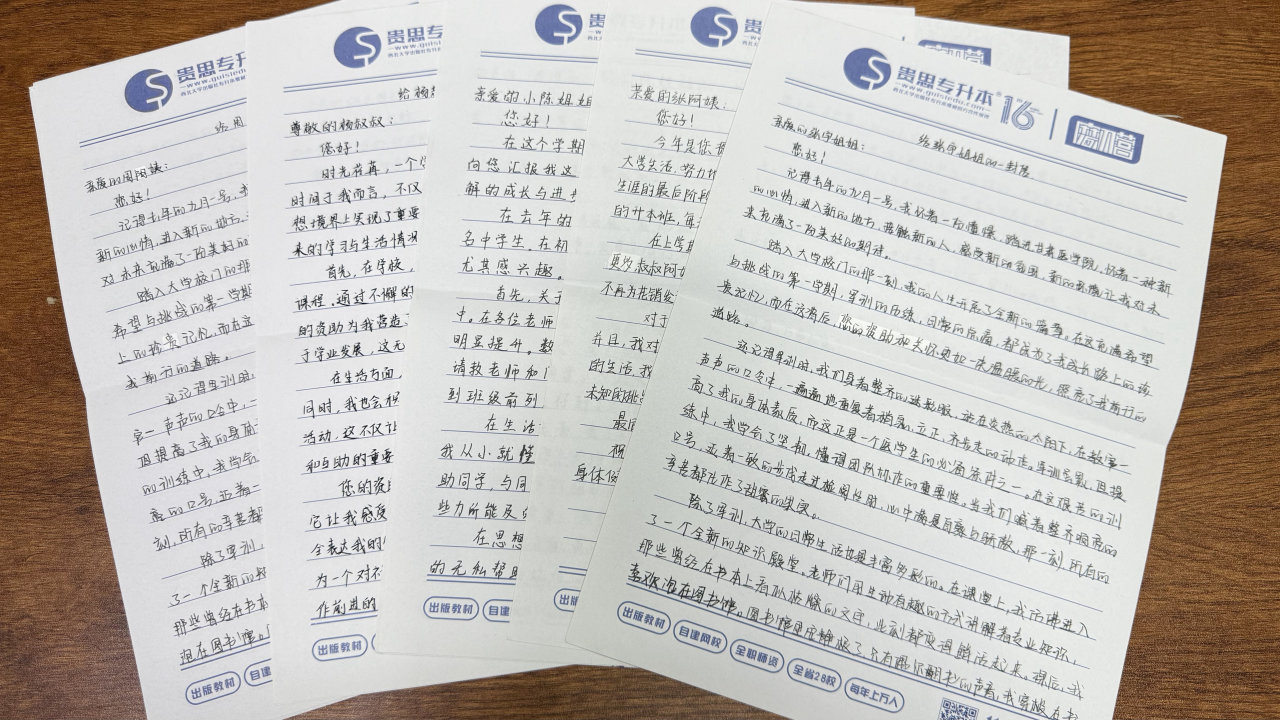 贵思专升
给周
亲爱的周阿姨：
您好！
记得去年的九月一号，我
新的心情，进入新的地方，
对未来充满了一百美好的
踏入大学校门的那
希望与挑战的第一学期
上的珍贵记忆，而在这
我前行的道路。
还记得军训时，
第一声声的口令中，一
但提高了我的身体
的训练中，我学会
亮的口号，迈着一
刻，所有的辛苦都
除了军训，
了一个全新的知
那些曾经在书本
泡在图书馆。
出版教材
自建
贵思
www.guisiedu.com
给杨
尊敬的杨叔叔：
您好！
时光荏苒，一个学
时间于我而言，不仅
想境界上实现了重要
来的学习与生活情况
首先，在学校，
课程，通过不懈的
的资助为我营造
于学业发展，这无
在生活方面
同时，我也会积
活动，这不仅让
和互助的重要
您的资
它让我感
全表达我的
为一个对
作前进的
出版教材
亲爱的小陈姐姐
您好！
在这个学期
向您汇报我这
解的成长与进步
在去年的
名中学生，在初
尤其感兴趣。
首先，关于
中，在各位老师
明显提升。数
请教老师和同
到班级前列
在生活
我从小就懂
助同学，与同
些力所能及的
在思想
的无私帮助
出版教材
自建
贵思
亲爱的张阿姨：
您好！
今年是您
大学生活，努力
生涯的最后阶段
的升本班，每
在上学期
更多叔叔阿
不再为花销
对于
并且，我对
的生活，我
未知的挑
最
祝
身体健
出版
贵思专升本
www.guisiedu.com
西北大学出版社专升本教材图书合作单位
16
磨川营
给张宇姐姐的一封感
亲爱的张宇姐姐：
您好！
记得去年的九月一号，我怀着一百憧憬，踏进甘肃医学院，怀着一种新
的心情，进入新的地方，接触新的人，感受新的氛围，新的环境让我对未
来充满了一百美好的期待。
踏入大学校门的那一刻，我的人生开启了全新的篇章。在这充满希望
与挑战的第一学期，军训的历练，日常的点滴，都成为了我成长路上的珍
贵记忆，而在这背后，您的资助和关怀更如一束温暖的光，照亮了我前行的
道路。
还记得军训时，我们身着整齐的迷彩服，站在炎热的太阳下，在教官一
声声的口令中，一遍遍地重复着稍息、立正、齐步走的动作。军训虽累，但提
高了我的身体素质，而这正是一个医学生的必备条件之一。在这艰苦的训
练中，我学会了坚韧，懂得团队协作的重要性。当我们喊着整齐响亮的
口号，迈着一致的步伐走过检阅台时，心中满是自豪与骄傲，那一刻，所有的
辛苦都化作了动容的笑容。
除了军训，大学的日常生活也是丰富多彩的。在课堂上，我仿佛进入
了一个全新的知识殿堂，老师们用生动有趣的方式讲解着专业知识，
那些曾经在书本上看似晦涩的文字，此刻都变得鲜活起来。课后，我
喜欢泡在图书馆。图书馆里安静极了，只有偶尔翻书的声音，我穿梭在书
出版教材
自建网校
全职师资
全省28校
每年上万人